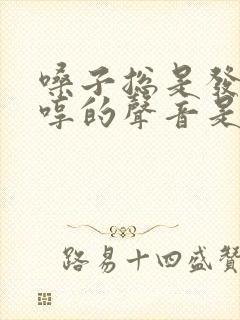 嗓子总是發
哼的聲音是
路易十四盛贊